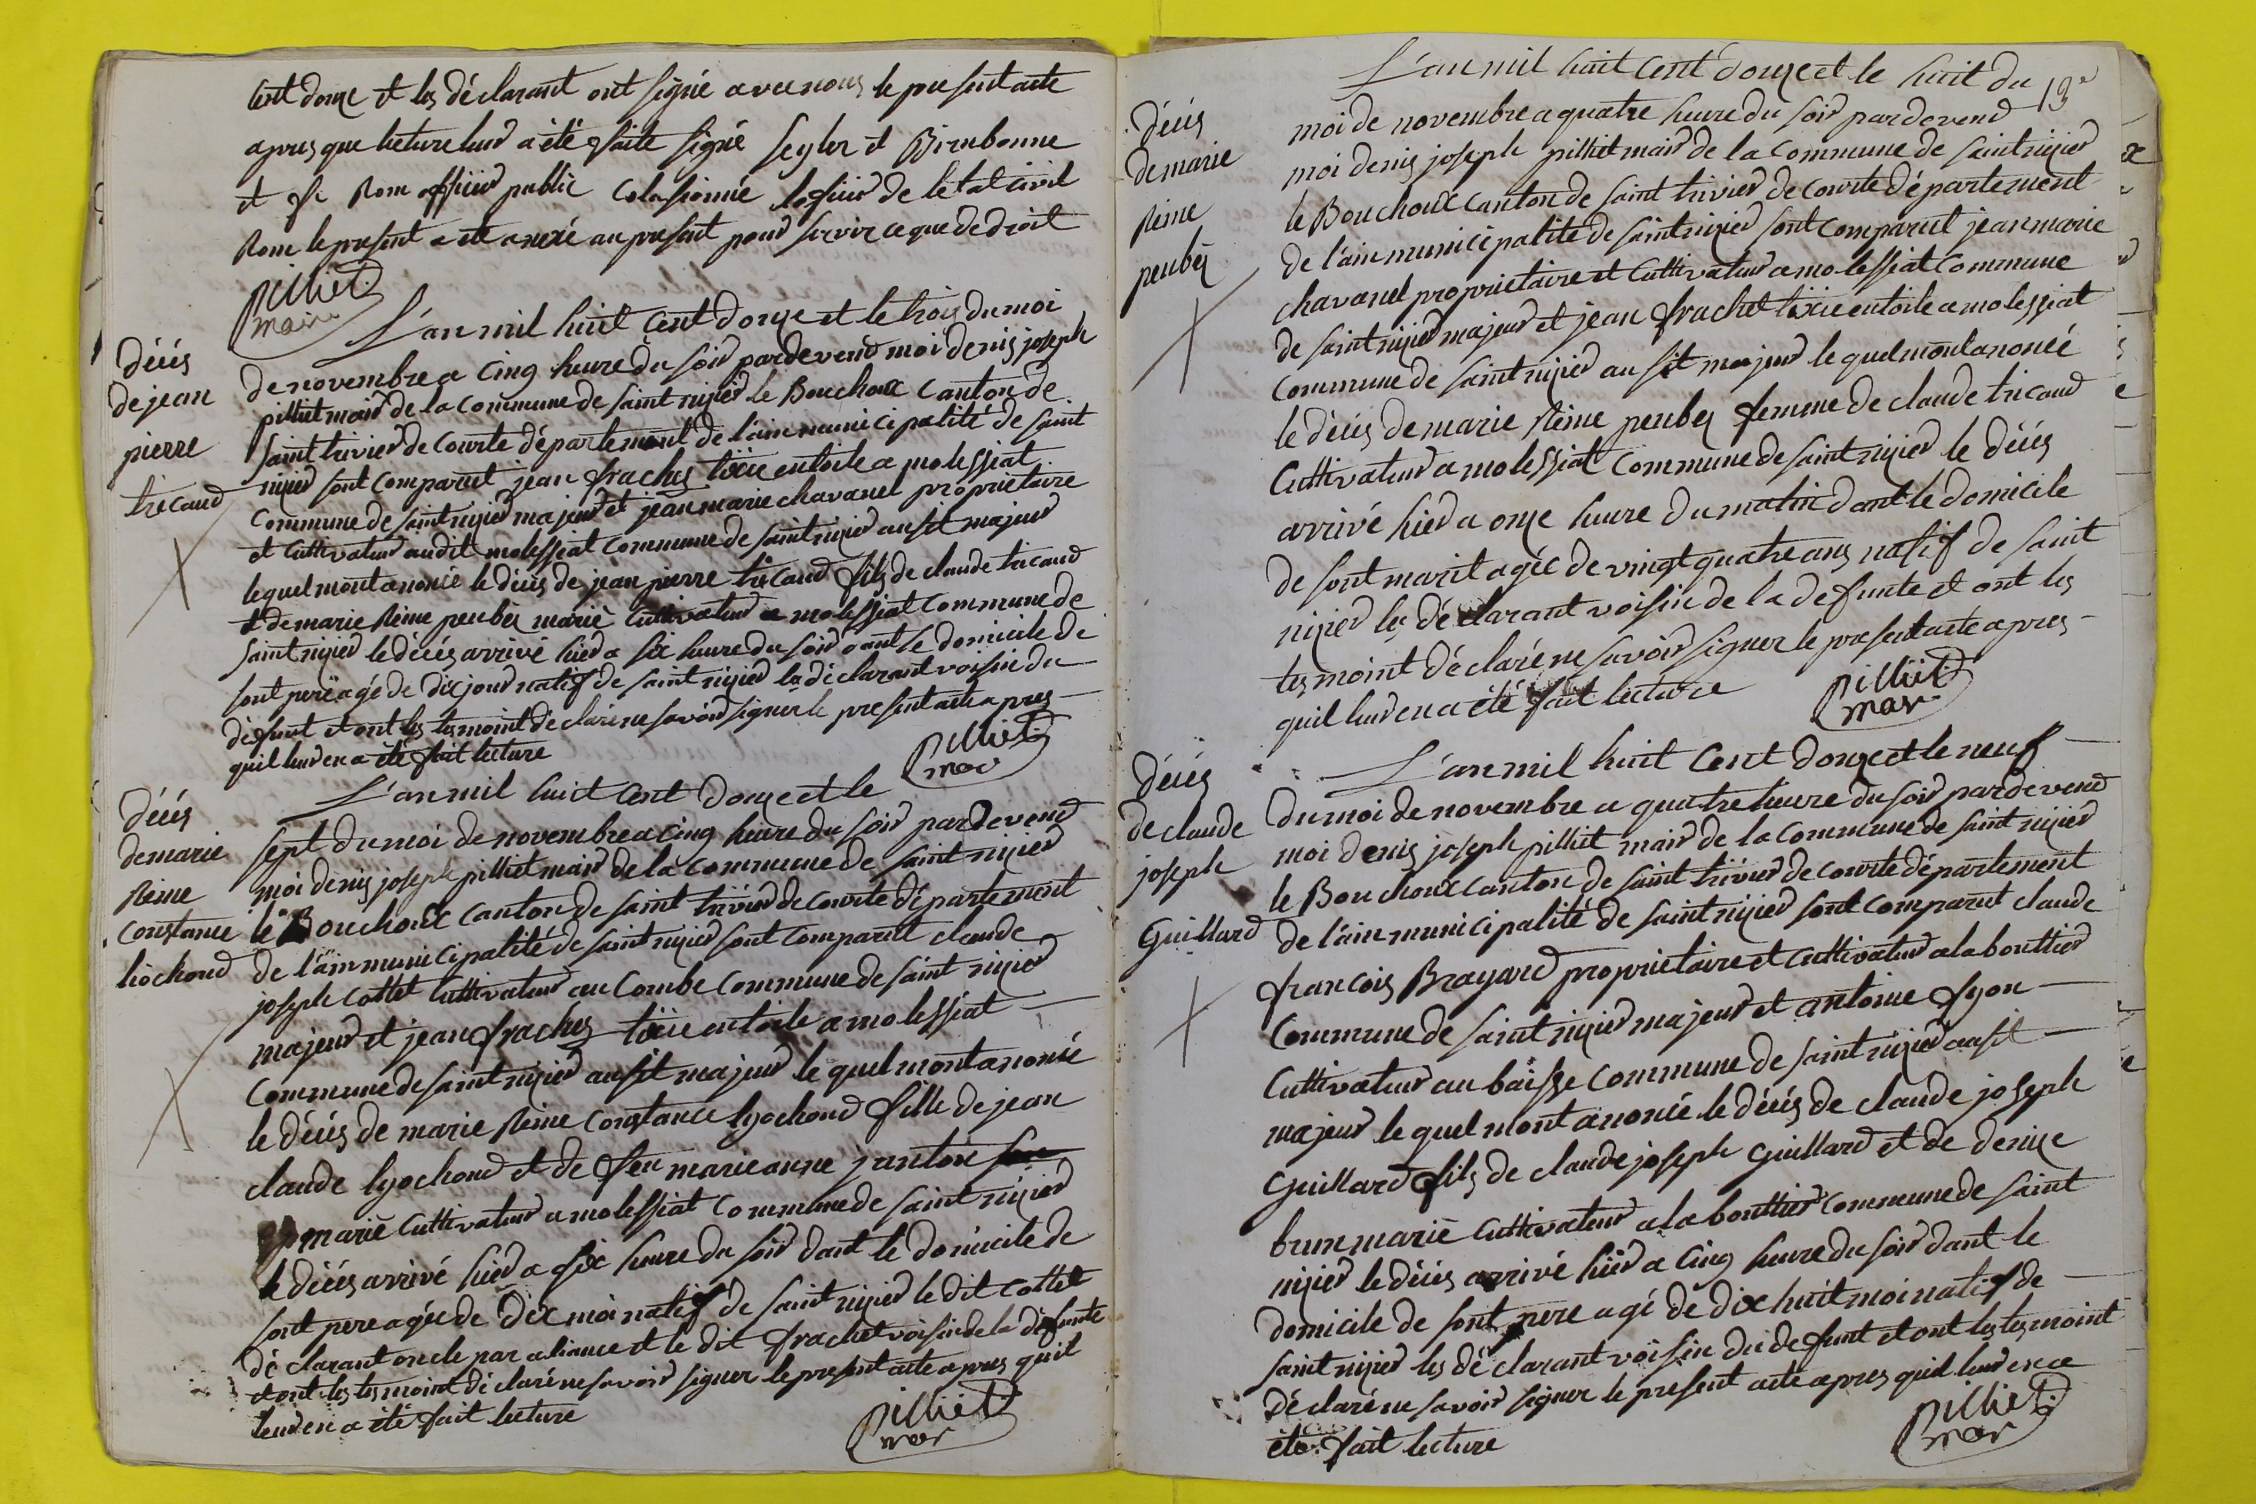 cent douze et les déclarant ont signé avec nous le present acte
apres que lecture leur a été faite signé Seyler et Birnbonne
et fr Rom officier public colasionné lofficier de l'état civil
Rom le present a été anexé au present pour servir a que de droit
pilliet
maire
Décés
de jean
pierre
tricaud
L'an mil huit cent douze et le trois du moi
de novembre a cinq heure du soir pardevend moi denis joseph
pilliet mair de la commune de saint nizier le Bouchoux canton de
saint trivier de courte département de l'ain municipalité de saint
nizier sont comparut jean frachet tixie en toile a molessiat
commune de saint nizier majeur et jean marie chavanel proprietaire
et cultivateur audit molessiat commune de saint nizier ausit majeur
lequel mont anoncé le décés de jean pierre tricaud fils de claude tricaud
et de marie Reine penbey marié cultivateur a molessiat commune de
saint nizier le décés arrivé hier a six heure du soir dant le domicile de
sont pere agé de dix jour natif de saint nizier les déclarant voisin du
défunt et ont les tesmoint déclaré ne savoir signer le present acte apres
quil leur en a été fait lecture
pilliet
mar
Décés
de marie
Reine
constance
liochoud
L'an mil huit cent douze et le
sept du moi de novembre a cinq heure du soir pardevend
moi denis joseph pilliet mair de la commune de saint nizier
le Bouchoux canton de saint trivier de courte département
de l'ain municipalité de saint nizier sont comparut claude
joseph cottet cultivateur au combe commune de saint nizier
majeur et jean frachet tixie en toile a molessiat
commune de saint nizier ausit majeur le quel mont anoncé
le décés de marie Reine constance lyochoud fille de jean
claude lyochoud et de feu marie anne janton
marié cultivateur a molessiat commune de saint nizier
le décés arrivé hier a six heure du soir dant le domicile de
sont pere agée de dix moi natif de saint nizier le dit cottet
déclarant oncle par aliance et le dit frachet voisin de la defunte
et ont les tesmoint déclaré ne savoir signer le present acte apres quil
leur en a été fait lecture
pilliet
mar
13e
Décés
de marie
Reine
penbey
L'an mil huit cent douze et le huit du
moi de novembre a quatre heure du soir pardevend
moi denis joseph pilliet mair de la commune de saint nizier
le Bouchoux canton de saint trivier de courte département
de l'ain municipalité de saint nizier sont comparut jean marie
chavanel proprietaire et cultivateur a molessiat commune
de saint nizier majeur et jean frachet tixie en toile a molessiat
commune de saint nizier au sit majeur le quel mont anoncé
le décés de marie Reine penbey femme de claude tricaud
cultivateur a molessiat commune de saint nizier le décés
arrivé hier a onze heure du matin dant le domicile
de sont marit agée de vingt quatre ans natif de saint
nizier les déclarant voisin de la defunte et ont les
tesmoint déclaré ne savoir signer le present acte apres
quil leur en a été fait lecture
pilliet
mar
Décés
de claude
joseph
Guillard
L'an mil huit cent douze et le neuf
du moi de novembre a quatre heure du soir pardevend
moi denis joseph pilliet mair de la commune de saint nizier
le Bouchoux canton de saint trivier de courte département
de l'ain municipalité de saint nizier sont comparut claude
francois Brayard proprietaire et cultivateur a la bouttier
commune de saint nizier majeur et antoine fyon
cultivateur au baisse commune de saint nizier ausit
majeur le quel mont anoncé le décés de claude joseph
Guillard fils de claude joseph Guillard et de denize
brun marié cultivateur a la bouttier commune de saint
nizier le décés arrivé hier a cinq heure du soir dant le
domicile de sont pere agé de dix huit moi natif de
saint nizier les déclarant voisin du defunt et ont les tesmoint
déclaré ne savoir signer le present acte apres quil leur en a
été fait lecture
pilliet
mar